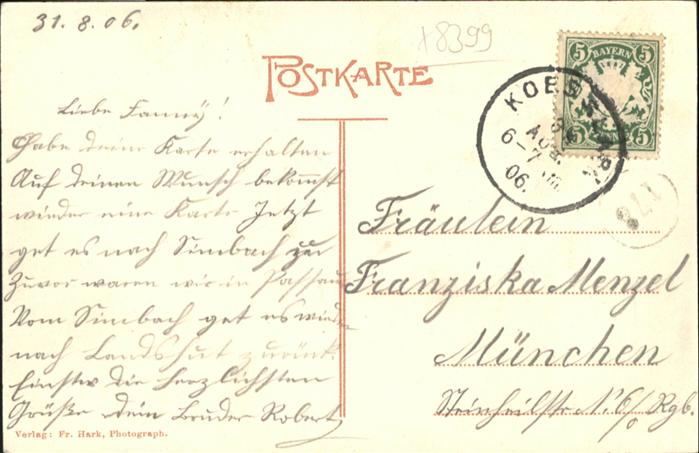 31.8.06.
18399
POSTKARTE
BAYERN
5 5
5 5
KOES
31
AUG
6-7
06.
Liebe Fanny!
Habe deine Karte erhalten
Auf deinen Wunsch bekomst
wieder eine Karte Jetzt
get es nach Simbach zu
Zuvor waren wir in Passau
Vom Simbach get es wieder
nach Landshut zurück.
die herzlichsten
Grüße dein Bruder Robert
Fräulein
Franziska Menzel
München
Steinheilstr № 6/0 Rgb.
Verlag: Fr. Hark, Photograph.